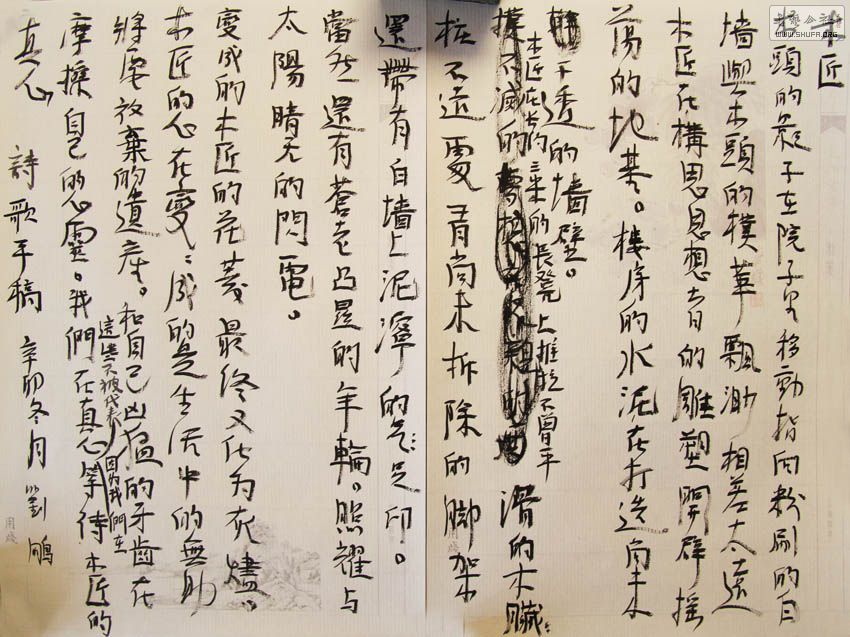 木匠
木頭的影子在院子里移動指向粉刷的白
墙與木頭的樸華飄渺相差太遠
木匠在構思思想者的雕塑開辟摇
荡的地基。樓房的水泥在打造
不透的墙壁。
木匠在三米的長凳上推捥不曾平
不滅的
潛的木臟
桩不遠處有尚未拆除的脚架
還帶有白墙上泥濘的足印。
當然還有蒼老凸显的年輪。照耀与
太陽晴天的閃電。
變成的木匠的花蕊最终又化为灰燼。
木匠的心在變、成的是生活中的無助
將要放棄的遺産。和自己凶猛的牙齒在
這些不被代表因为我們在
摩擦自己的心靈。我們在真心等待木匠的
真心
詩歌手稿 辛卯冬月 劉鵬
WWW.SHUFA.ORG